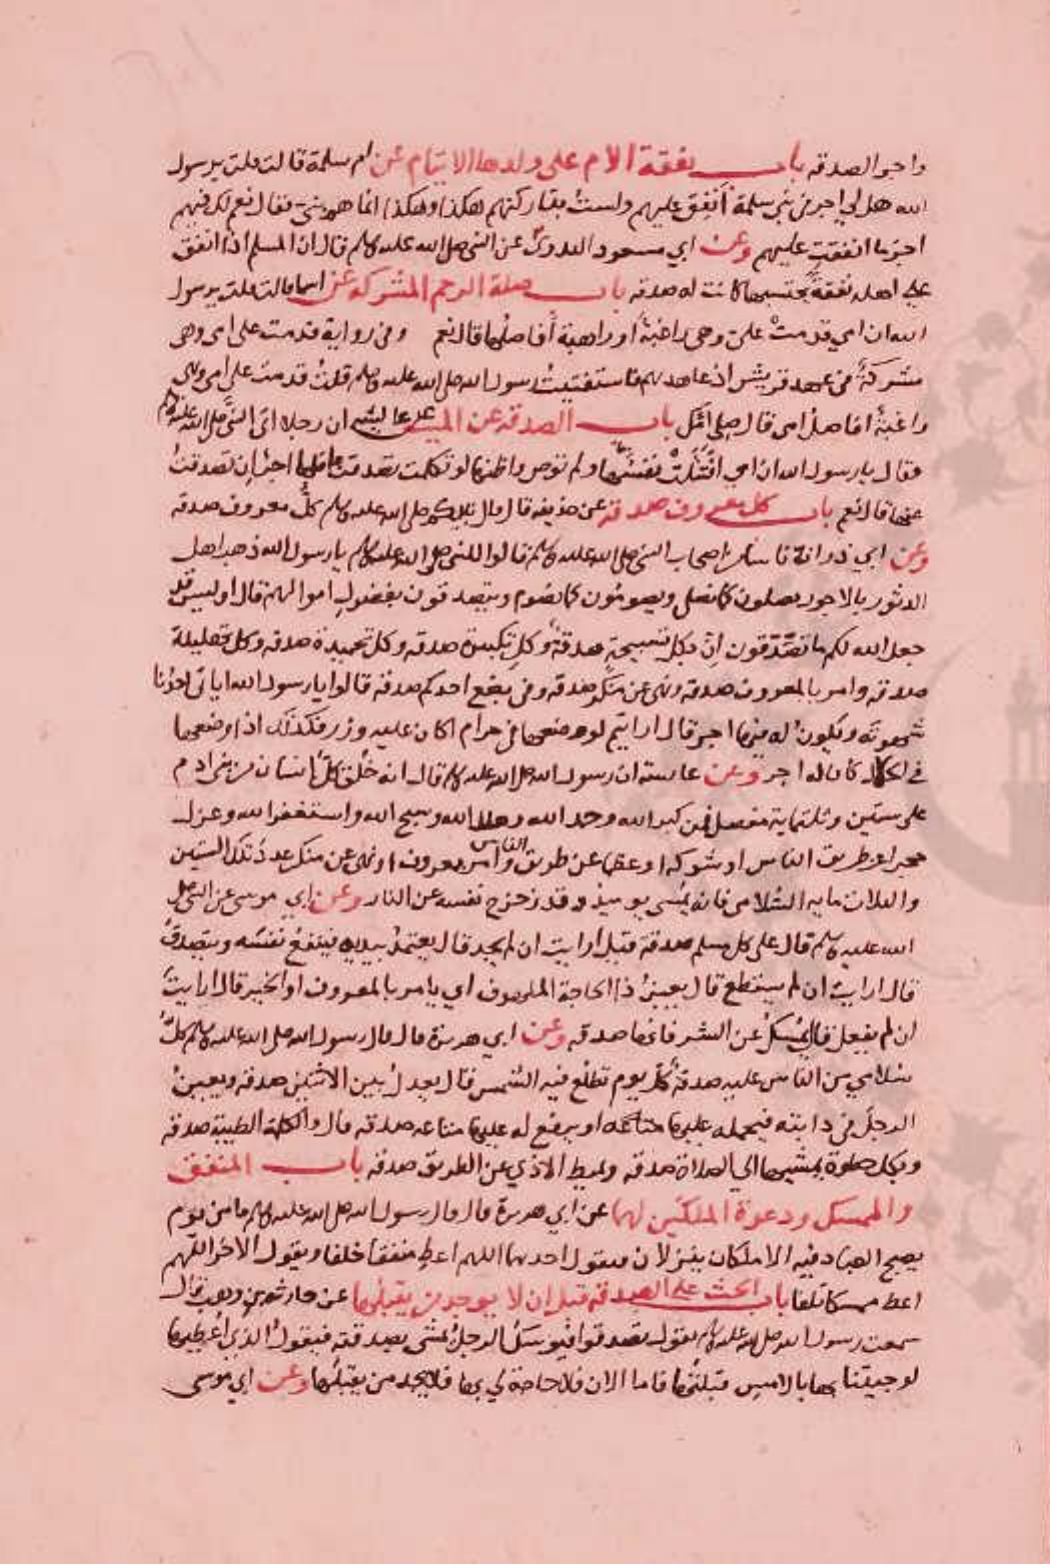 واجر الصدقه باب نفقة الام على ولدها الايتام عن ام سلمة قالت قلت يرسول
الله هل لي اجر في بني سلمة أنفق عليهم ولست بتاركتهم هكذا وهكذا انما هم بني فقال نعم لك فيهم
اجر ما انفقت عليهم وعن ابي مسعود البدري عن النبي صلى الله عليه وسلم قال ان المسلم اذا انفق
على اهله نفقة يحتسبها كانت له صدقه باب صلة الرحم المشركة عن اسما قالت قلت يرسول
الله ان امي قدمت علي وهي راغبة او راهبة أفاصلها قال نعم وفي رواية قدمت على امى وهى
مشركة في عهد قريش اذ عاهدهم فاستفتيت رسول الله صلى الله عليه وسلم قلت قدمت علي امي وهى
راغبة افاصل امى قال صلى امك باب الصدقة عن الميت عن عايشه ان رجلا اتى النبي صلى الله عليه وسلم
فقال يا رسول الله ان امي افتتلت نفسها ولم توص واظنها لو تكلمت تصدقت افلها اجر ان تصدقت
عنها قال نعم باب كل معروف صدقة عن حذيفه قال قال نبيكم صلى الله عليه وسلم كل معروف صدقه
وعن ابي ذر ان ناسا من اصحاب النبي صلى الله عليه وسلم قالوا للنبي صلى الله عليه وسلم يا رسول الله ذهب اهل
الدثور بالاجور يصلون كما نصلي ويصومون كما نصوم ويتصدقون بفضول اموالهم قال اوليس قد
جعل الله لكم ما تصدقون ان بكل تسبيحة صدقة وكل تكبيرة صدقه وكل تحميدة صدقه وكل تهليلة
صدقه وامر بالمعروف صدقه ونهى عن منكر صدقه وفي بضع احدكم صدقه قالوا يا رسول الله اياتى احدنا
شهوته ويكون له فيها اجر قال ارايتم لو وضعها في حرام اكان عليه وزر فكذلك اذا وضعها
في الحلال كان له اجر وعن عايشه ان رسول الله صلى الله عليه وسلم قال انه خلق كل انسان من بني ادم
على ستين وثلثماية مفصل فمن كبر الله وحمد الله وهلل الله وسبح الله واستغفر الله وعزل
حجرا عن طريق الناس او شوكه او عظما عن طريق الناس وامر بمعروف او نهى عن منكر عدد تلك الستين
والثلاث مايه السلامى فانه يمشى يوميذ وقد زحزح نفسه عن النار وعن ابي موسى عن النبي صلى
الله عليه وسلم قال على كل مسلم صدقة قيل ارايت ان لم يجد قال يعتمل بيديه فينفع نفسه ويتصدق
قال ارايت ان لم يستطع قال يعين ذا الحاجة الملهوف اي يامر بالمعروف او الخير قال ارايت
ان لم يفعل قال يمسك عن الشر فانها صدقه وعن ابي هريرة قال قال رسول الله صلى الله عليه وسلم كل
سلامي من الناس عليه صدقة كل يوم تطلع فيه الشمس قال يعدل بين الاثنين صدقه ويعين
الرجل في دابته فيحمله عليها او يرفع له عليها متاعه صدقه قال والكلمة الطيبة صدقه
وبكل خطوة يمشيها الي الصلاة صدقه ويميط الاذي عن الطريق صدقه باب المنفق
والممسك ودعوة الملكين لهما عن ابي هريرة قال قال رسول الله صلى الله عليه وسلم ما من يوم
يصبح العباد فيه الا ملكان ينزلان فيقول احدهما اللهم اعط منفقا خلفا ويقول الاخر اللهم
اعط ممسكا تلفا باب الحث على الصدقه قبل ان لا يوجد من يقبلها عن حارثه بن وهب قال
سمعت رسول الله صلى الله عليه وسلم يقول تصدقوا فيوشك الرجل يمشي بصدقته فيقول الذي اعطيها
لو جيتنا بها بالامس قبلتها فاما الان فلا حاجة لي بها فلا يجد من يقبلها وعن ابي موسى